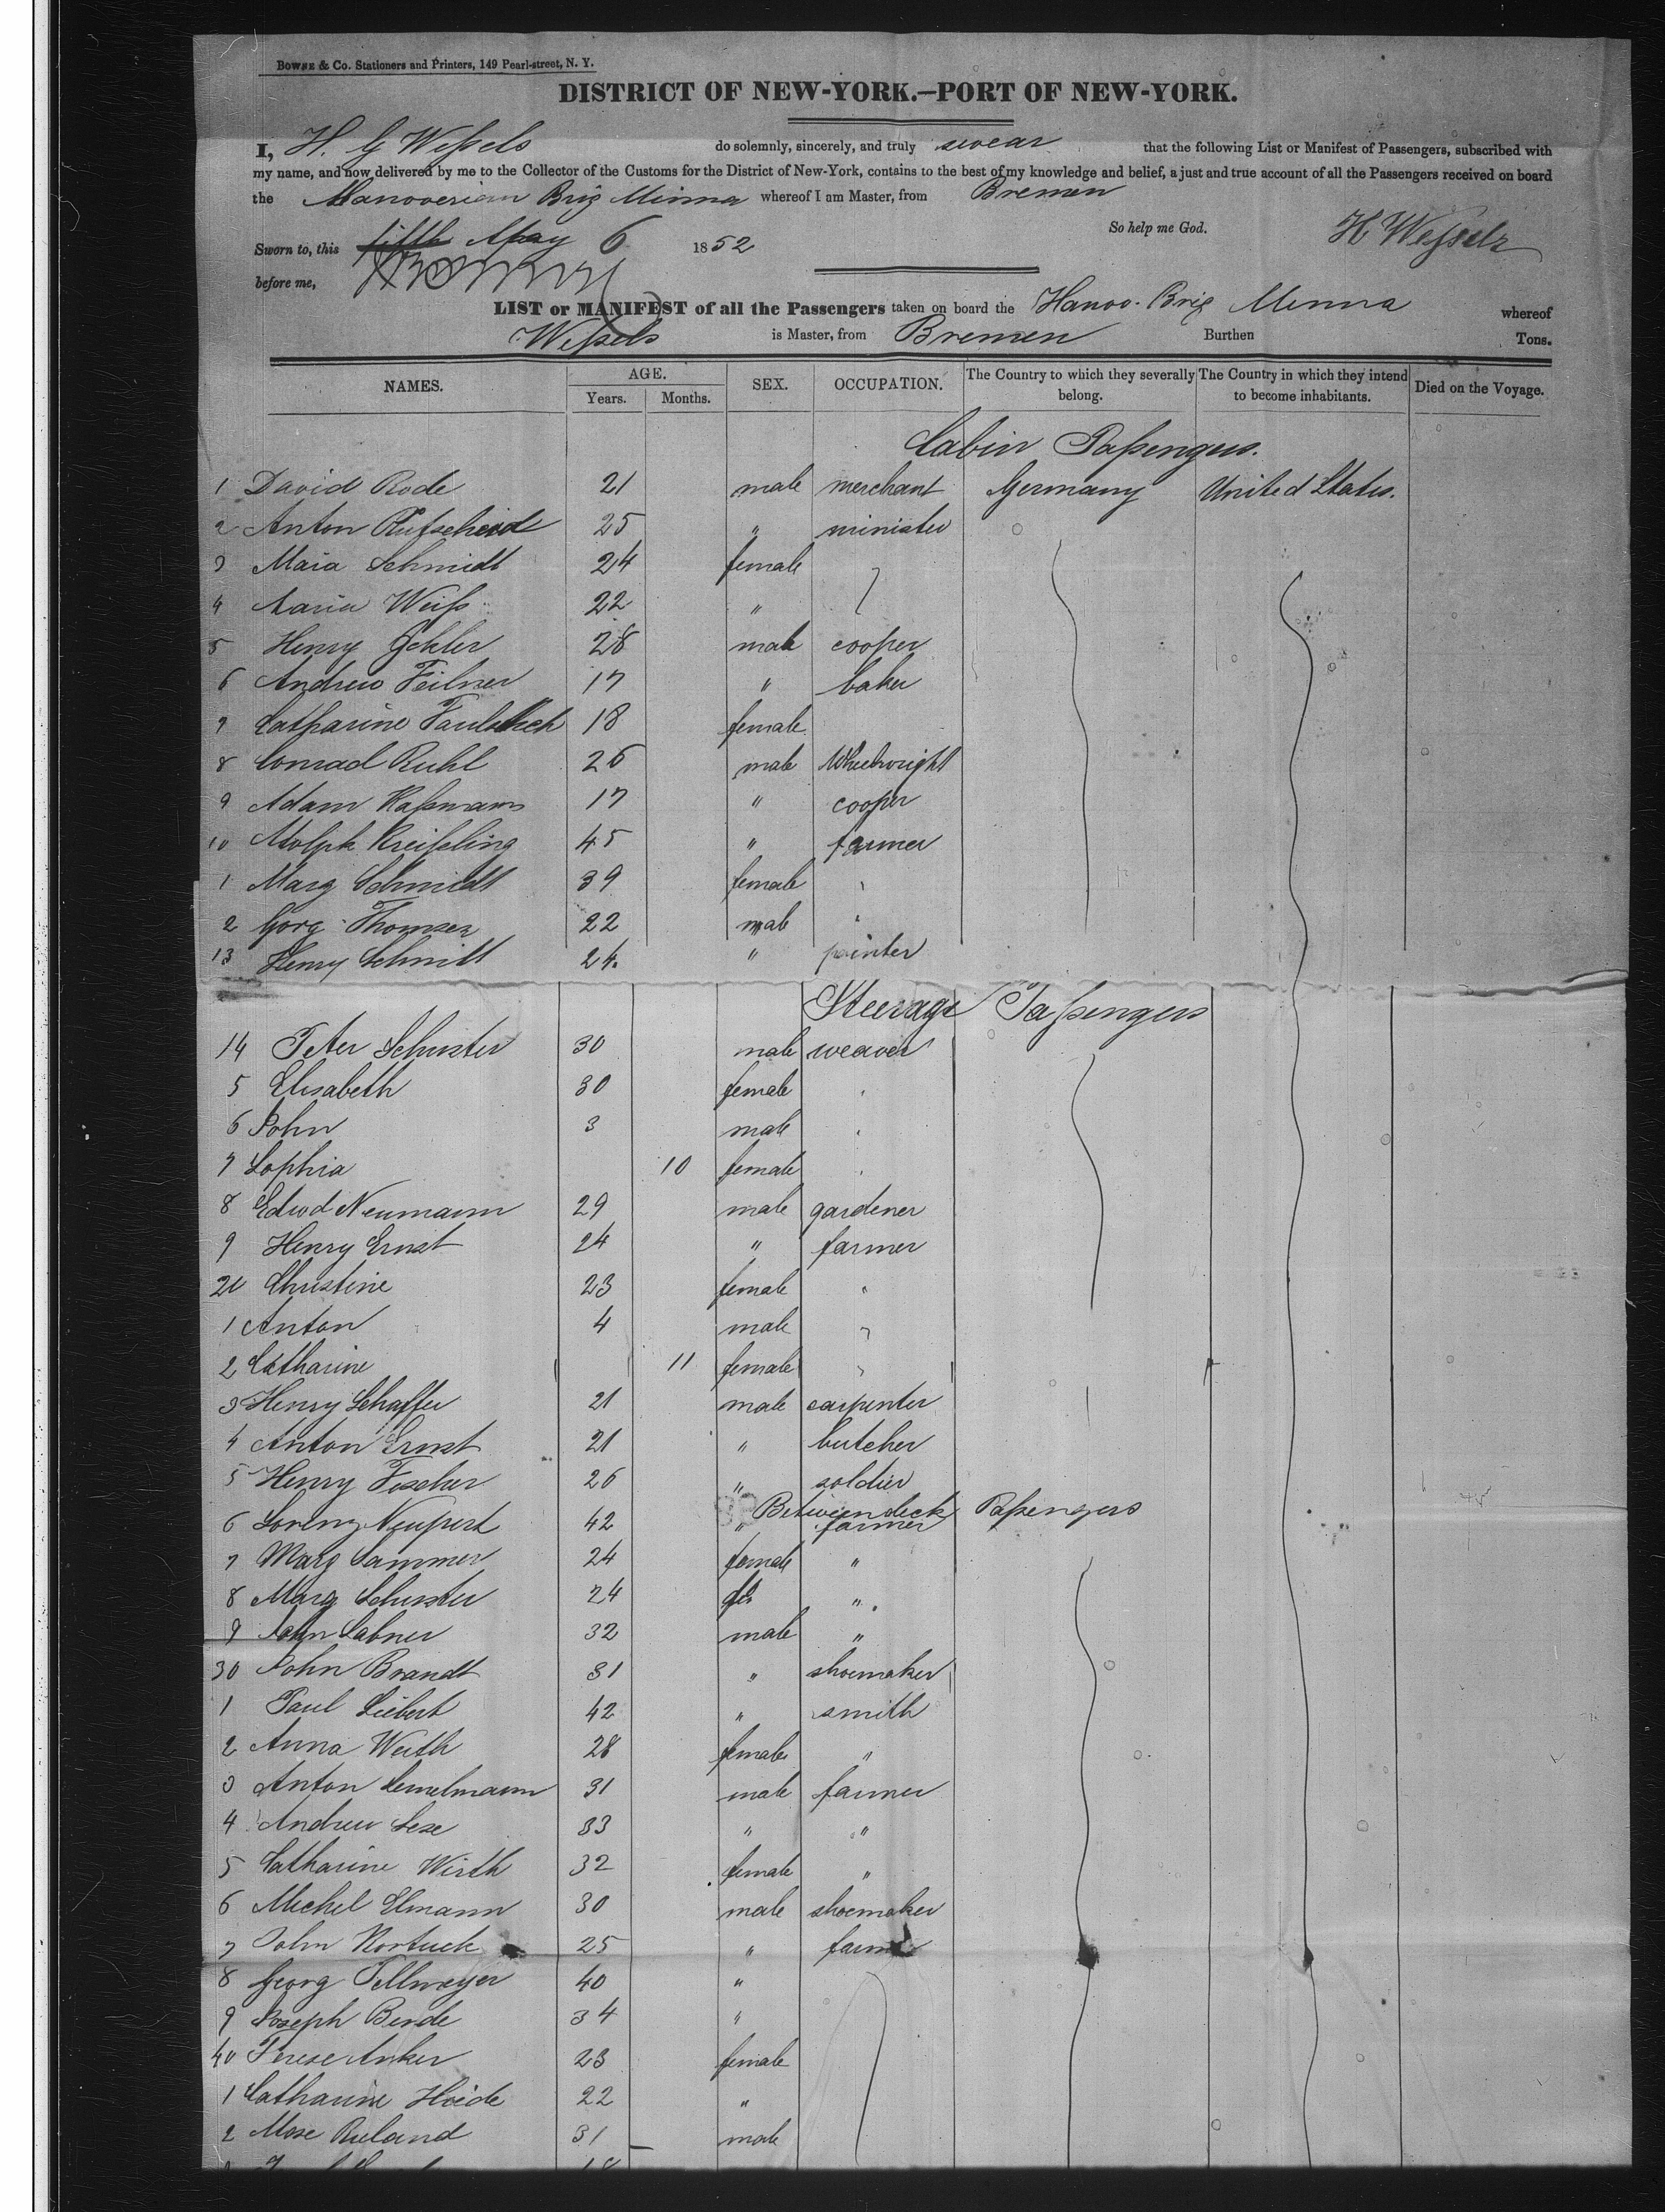 BOWNE & CO. Stationers and Printers, 149 Pearl-street, N. Y.
DISTRICT OF NEW-YORK.—PORT OF NEW-YORK.
I, H. G Weßels do solemnly, sincerely, and truly swear that the following List or Manifest of Passengers, subscribed with
my name, and now delivered by me to the Collector of the Customs for the District of New-York, contains to the best of my knowledge and belief, a just and true account of all the Passengers received on board
the Hanoverian Brig Minna whereof I am Master, from Bremen
So help me God. H Weßels
Sworn to, this fifth May 6 1852
before me,
LIST or MANIFEST of all the Passengers taken on board the Hanov. Brig Minna whereof
Weßels is Master, from Bremen Burthen Tons.
NAMES. AGE. SEX. OCCUPATION. The Country to which they severally belong. The Country in which they intend to become inhabitants. Died on the Voyage.
Years. Months.
Cabin Paßengers.
1 David Rode 21 male merchant Germany United States.
2 Anton 25 " minister
3 Maria Schmidt 24 female
4 Maria Weiß 22 "
5 Henry 28 male cooper
6 Andrew Feilner 17 " baker
7 Catharine 18 female
8 Conrad Ruhl 26 male Wheelwright
9 Adam Haßmann 17 " cooper
10 Adolph Kreißling 45 " farmer
1 Marg Schmidt 39 female
2 Gorg Thomser 22 male
13 Henry Schmitt 24. " painter
Steerage Paßengers
14 Peter Schuster 30 male weaver
5 Elisabeth 30 female
6 John 3 male
7 Sophia 10 female
8 Edwd Neumann 29 male gardener
9 Henry Ernst 24 " farmer
20 Christine 23 female "
1 Anton 4 male
2 Catharine 11 female
3 Henry Schaffer 21 male carpenter
4 Anton Ernst 21 " butcher
5 Henry Fischer 26 " soldier
Betweendeck Paßengers
6 Lorenz Neupert 42 " farmer
7 Marg Sammer 24 female "
8 Marg Schuster 24 do. "
9 John Labner 32 male "
30 John Brandt 31 " shoemaker
1 Paul Liebert 42 " smith
2 Anna Werth 28 female "
3 Anton 31 male farmer
4 Andrew Lese 33 " "
5 Catharine Wirth 32 female "
6 Michel Elmann 30 male shoemaker
7 John Kortuck 25 " farmer
8 Georg Tellmeyer 40 "
9 Joseph Bende 34 "
40 Terese Anker 23 female
1 Catharine Heide 22 "
2 Mose Ruland 31 male